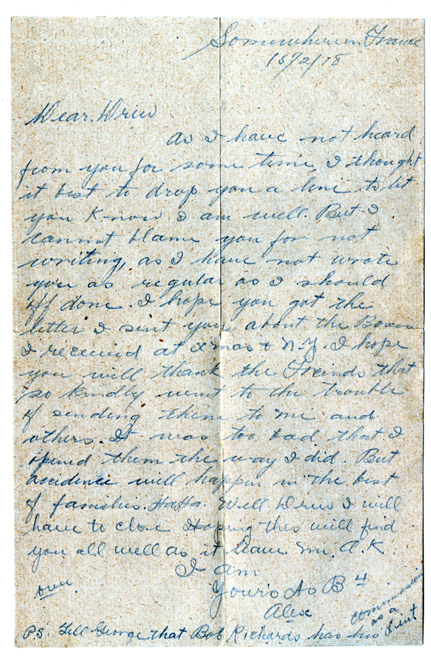 Somewhere in France
15/2/18
Dear Drew
As I have not heard
from you for some time I thought
it best to drop you a line to let
you know I am well. But I
cannot blame you for not
writing, as I have not wrote
you as regular as I should
off done. I hope you got the
letter I sent you about the Boxes
I received at Xmas + N.Y. I hope
you will thank the Freinds that
so kindly went to the trouble
of sending them to me and
others. It was too bad that I
opened them the way I did. But
accidence will happen in the best
of families. HaHa. Well Drew I will
have to close Hoping this will find
you all well as it leave me A.K.
I am
Your's As B4
Alex
over
PS. Tell George that Bob Richards has his
commission
as a
Lieut